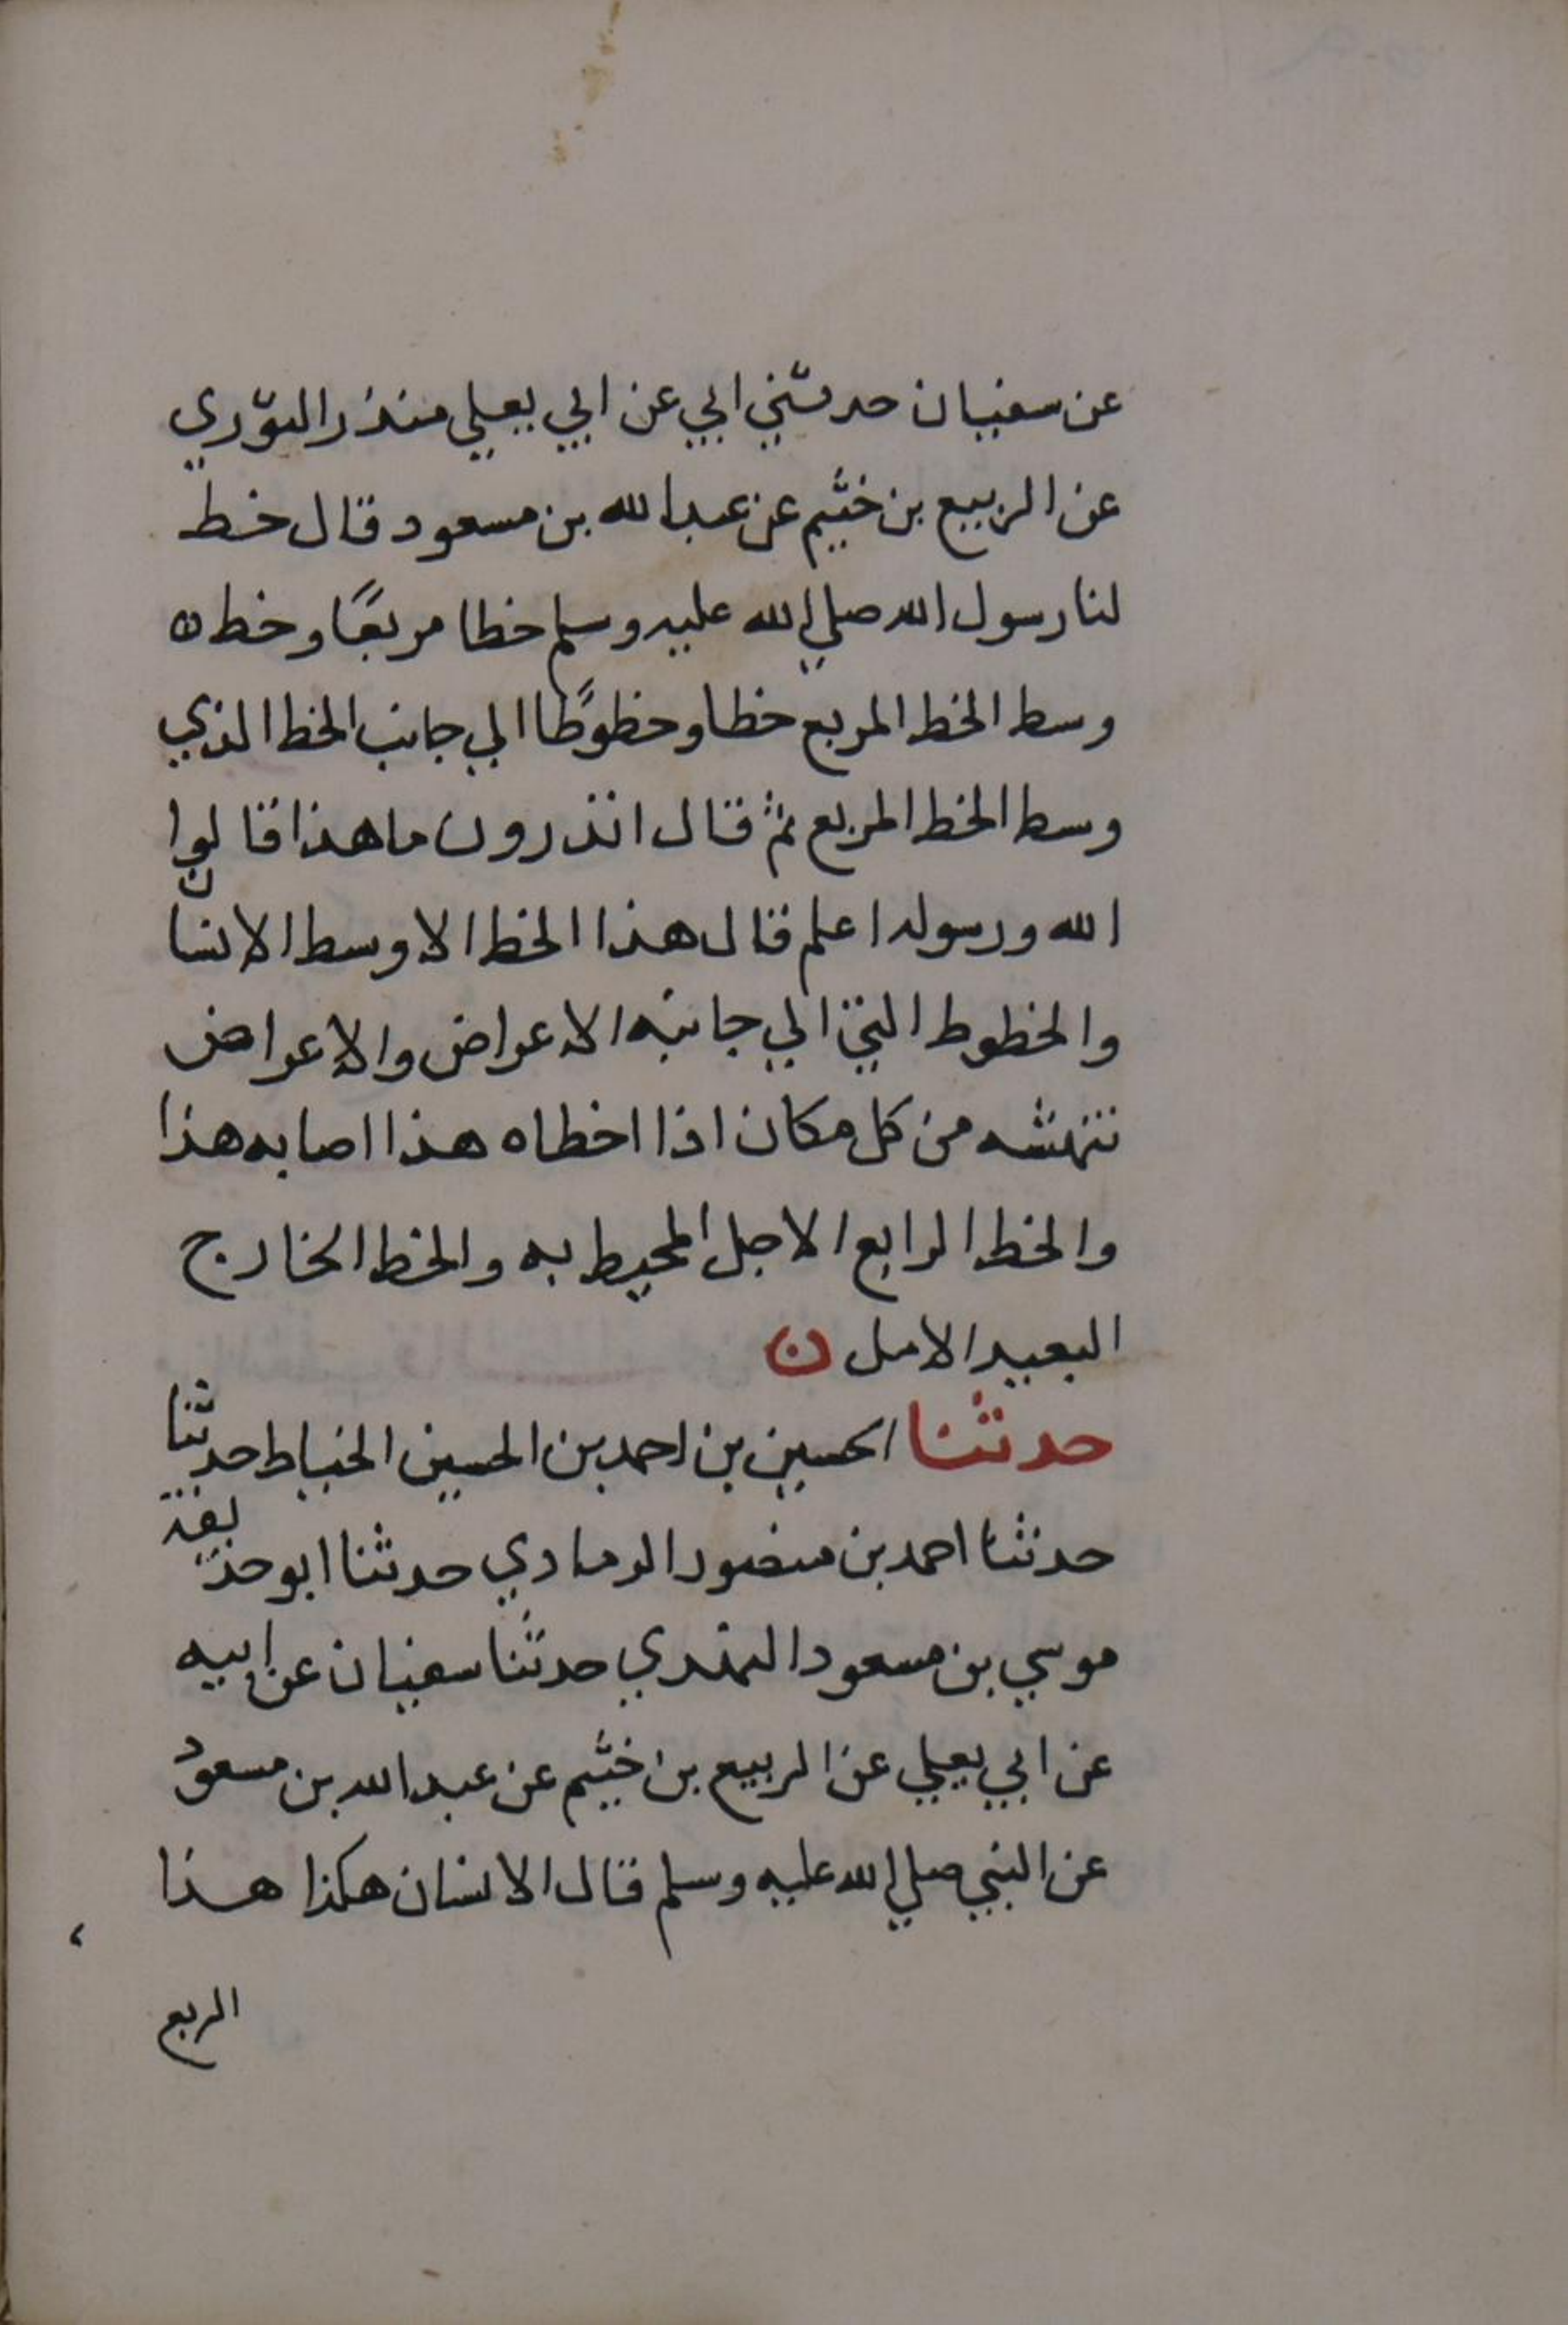 عن سفيان حدثني ابي عن ابي يعلي منذر الثوري
عن الربيع بن خثيم عن عبدالله بن مسعود قال خط
لنا رسول الله صلي الله عليه وسلم خطا مربعًا وخط ن
وسط الخط المربع خطا وخطوطًا الي جانب الخط الذي
وسط الخط المربع ثم قال اتدرون ما هذا قالوا
الله ورسوله اعلم قال هذا الخط الاوسط الانسان
والخطوط التي الي جانبه الاعراض والاعراض
تنهشه من كل مكان اذا اخطاه هذا اصابه هذا
والخط الرابع الاجل المحيط به والخط الخارج
البعيد الامل ن
حدثنا الحسين بن احمد بن الحسين الخياط حدثنا
حدثنا احمد بن منصور الرمادي حدثنا ابو حذيفة
موسي بن مسعود النهدي حدثنا سفيان عن ابيه
عن ابي يعلي عن الربيع بن خثيم عن عبد الله بن مسعود
عن النبي صلي الله عليه وسلم قال الانسان هكذا هذا
الربع